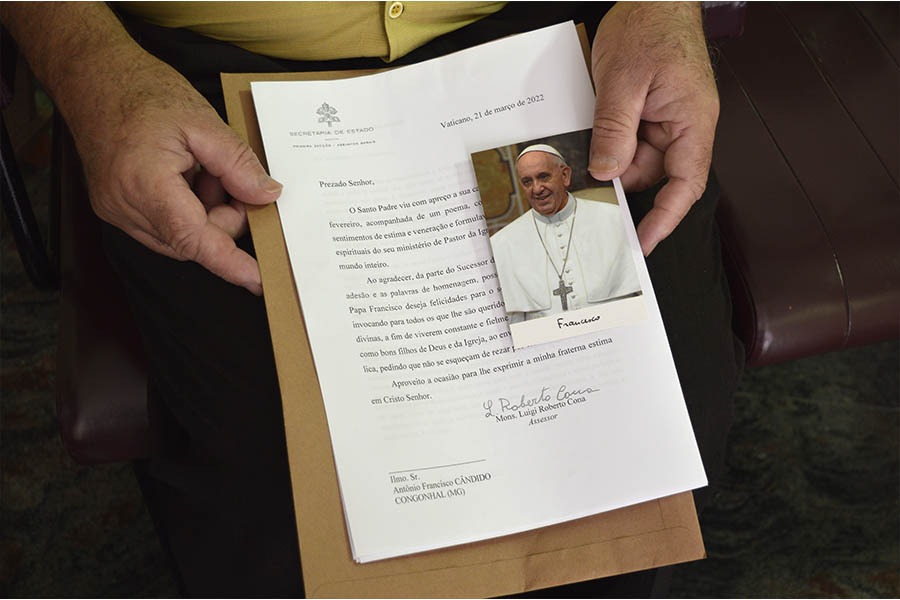 SECRETARIA DE ESTADO
PRIMEIRA SECÇÃO - ASSUNTOS GERAIS
Vaticano, 21 de março de 2022
Prezado Senhor,
O Santo Padre viu com apreço a sua
fevereiro, acompanhada de um poema,
sentimentos de estima e veneração e
espirituais do seu ministério de Pastor da
mundo inteiro.
Ao agradecer, da parte do Sucessor
adesão e as palavras de homenagem,
Papa Francisco deseja felicidades para o
invocando para todos os que lhe são
divinas, a fim de viverem constante e
como bons filhos de Deus e da Igreja, ao
lica, pedindo que não se esqueçam de rezar
Aproveito a ocasião para lhe exprimir a minha fraterna estima
em Cristo Senhor.
Franciscus
L. Roberto Cona
Mons. Luigi Roberto Cona
Assessor
Ilmo. Sr.
Antônio Francisco CÂNDIDO
CONGONHAL (MG)